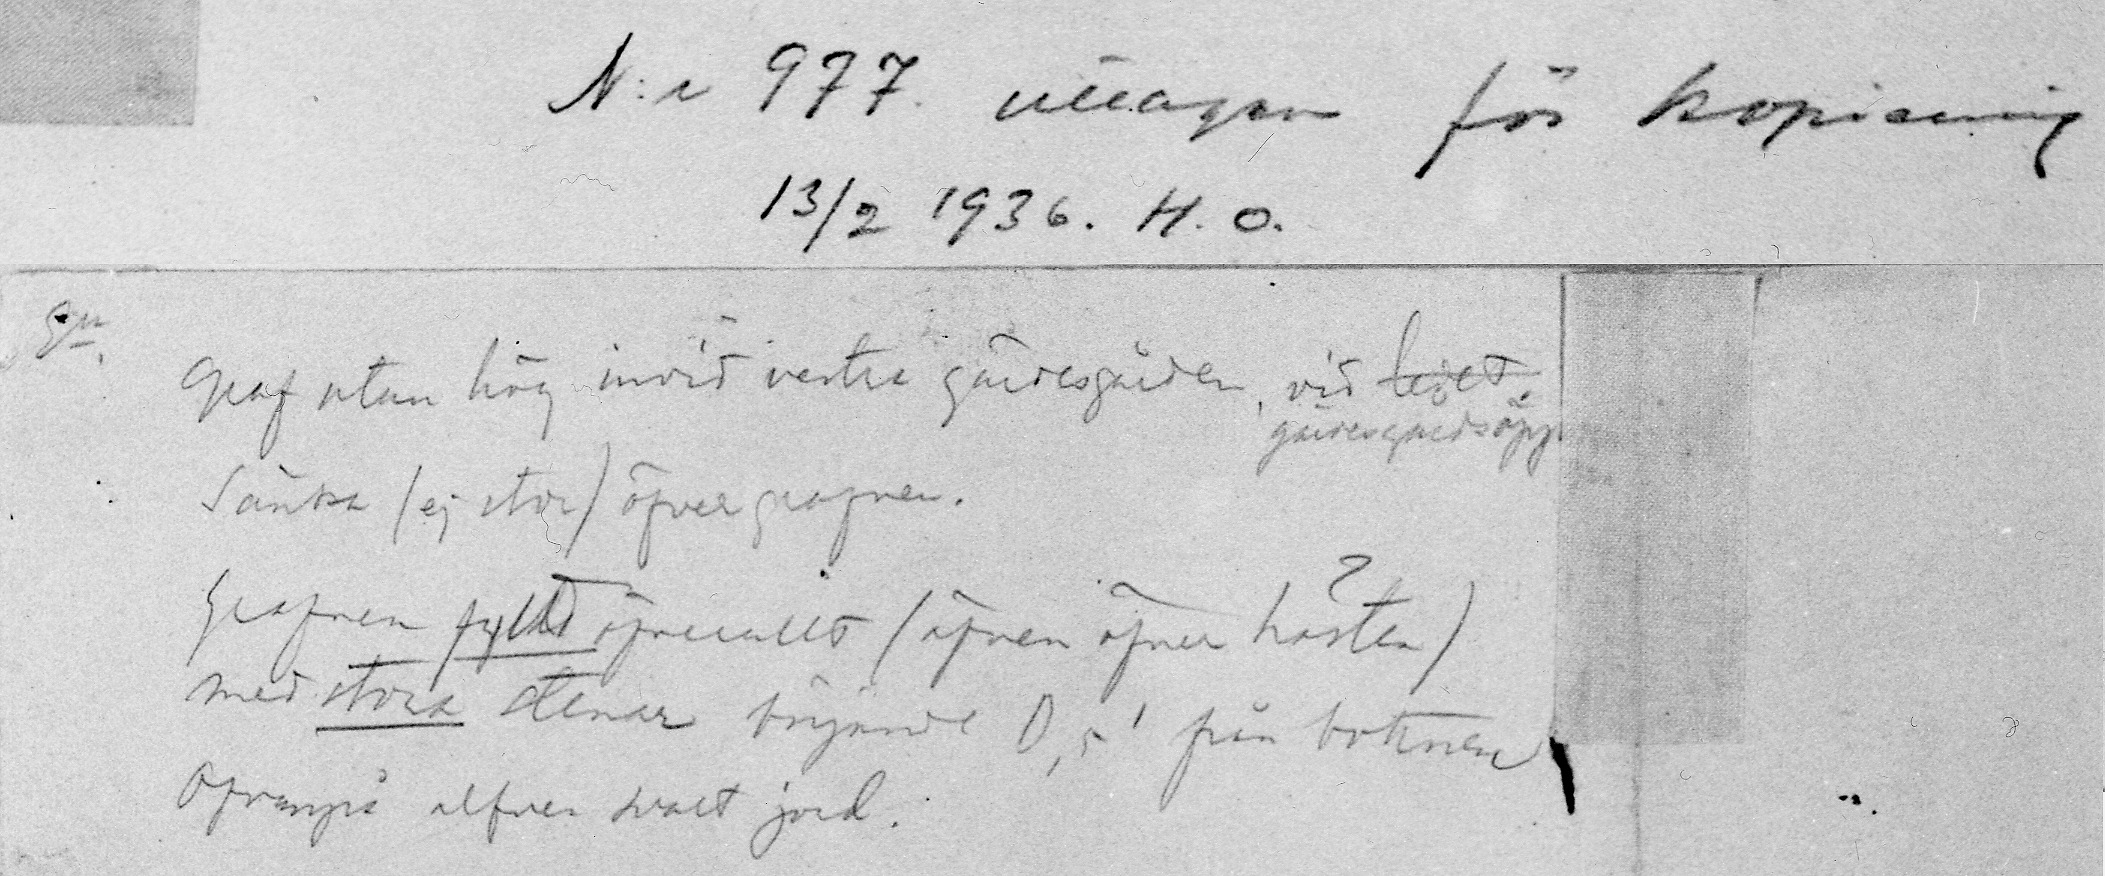 N:r 977. uttagen för kopiering
13/2 1936. H. O.
Graf utan hög invid vestra gärdesgården, vid ledet.
gärdesgårdsöpp
Sänka (ej stor) öfver grafven.
Grafven fylld öfverallt (äfven öfver hästen?)
med stora stenar började 0,5' från bottnen
Ofvanpå alfven svart jord.